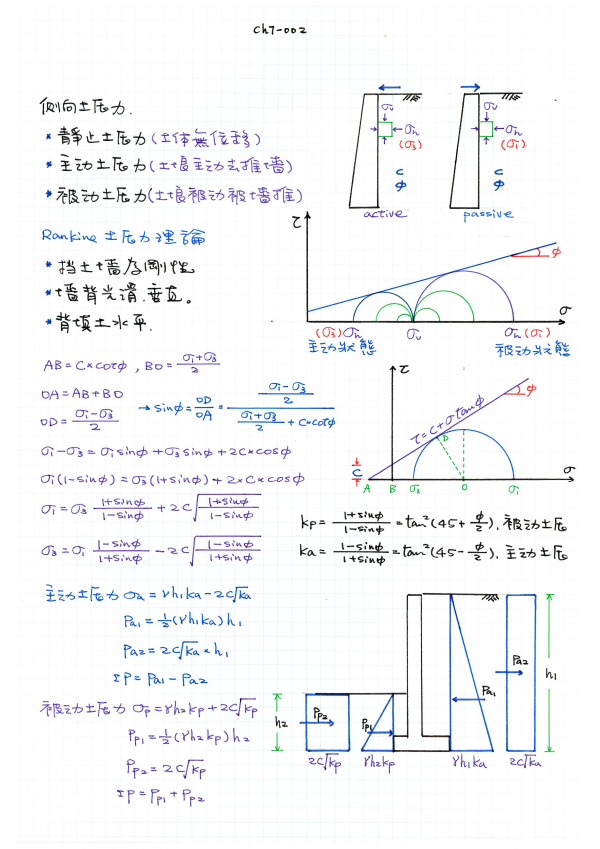 Ch7-002
側向土压力.
* 靜止土压力(土体無位移)
* 主动土压力(土壤主动去推墙)
* 被动土压力(土壤被动被墙推)
Rankine 土压力理論
* 挡土墙为剛性
* 墙背光滑.垂直。
* 背填土水平.
σv
σh
(σ3)
c
φ
active
σv
σh
(σ1)
c
φ
passive
τ
φ
σ
(σ3) σh
σv
σh (σ1)
主动狀態
被动狀態
AB = C×cotφ , BO = (σ1+σ3)/2
OA = AB + BO
OD = (σ1-σ3)/2 → sinφ = OD/OA = ((σ1-σ3)/2)/((σ1+σ3)/2 + C×cotφ)
σ1-σ3 = σ1sinφ+σ3sinφ+2C×cosφ
σ1(1-sinφ) = σ3(1+sinφ)+2×C×cosφ
σ1 = σ3 (1+sinφ)/(1-sinφ) + 2C√((1+sinφ)/(1-sinφ))
σ3 = σ1 (1-sinφ)/(1+sinφ) - 2C√((1-sinφ)/(1+sinφ))
τ
φ
τ=c+σtanφ
D
C
σ
A B σ3 O σ1
kp = (1+sinφ)/(1-sinφ) = tan²(45+φ/2), 被动土压
ka = (1-sinφ)/(1+sinφ) = tan²(45-φ/2), 主动土压
主动土压力 σa = γh1ka-2c√ka
Pa1 = ½(γh1ka)h1
Pa2 = 2c√ka × h1
ΣP = Pa1 - Pa2
被动土压力 σp = γh2kp+2c√kp
Pp1 = ½(γh2kp)h2
Pp2 = 2c√kp
ΣP = Pp1 + Pp2
h2
Pp2
Pp1
Pa1
Pa2
h1
2c√kp
γh2kp
γh1ka
2c√ka